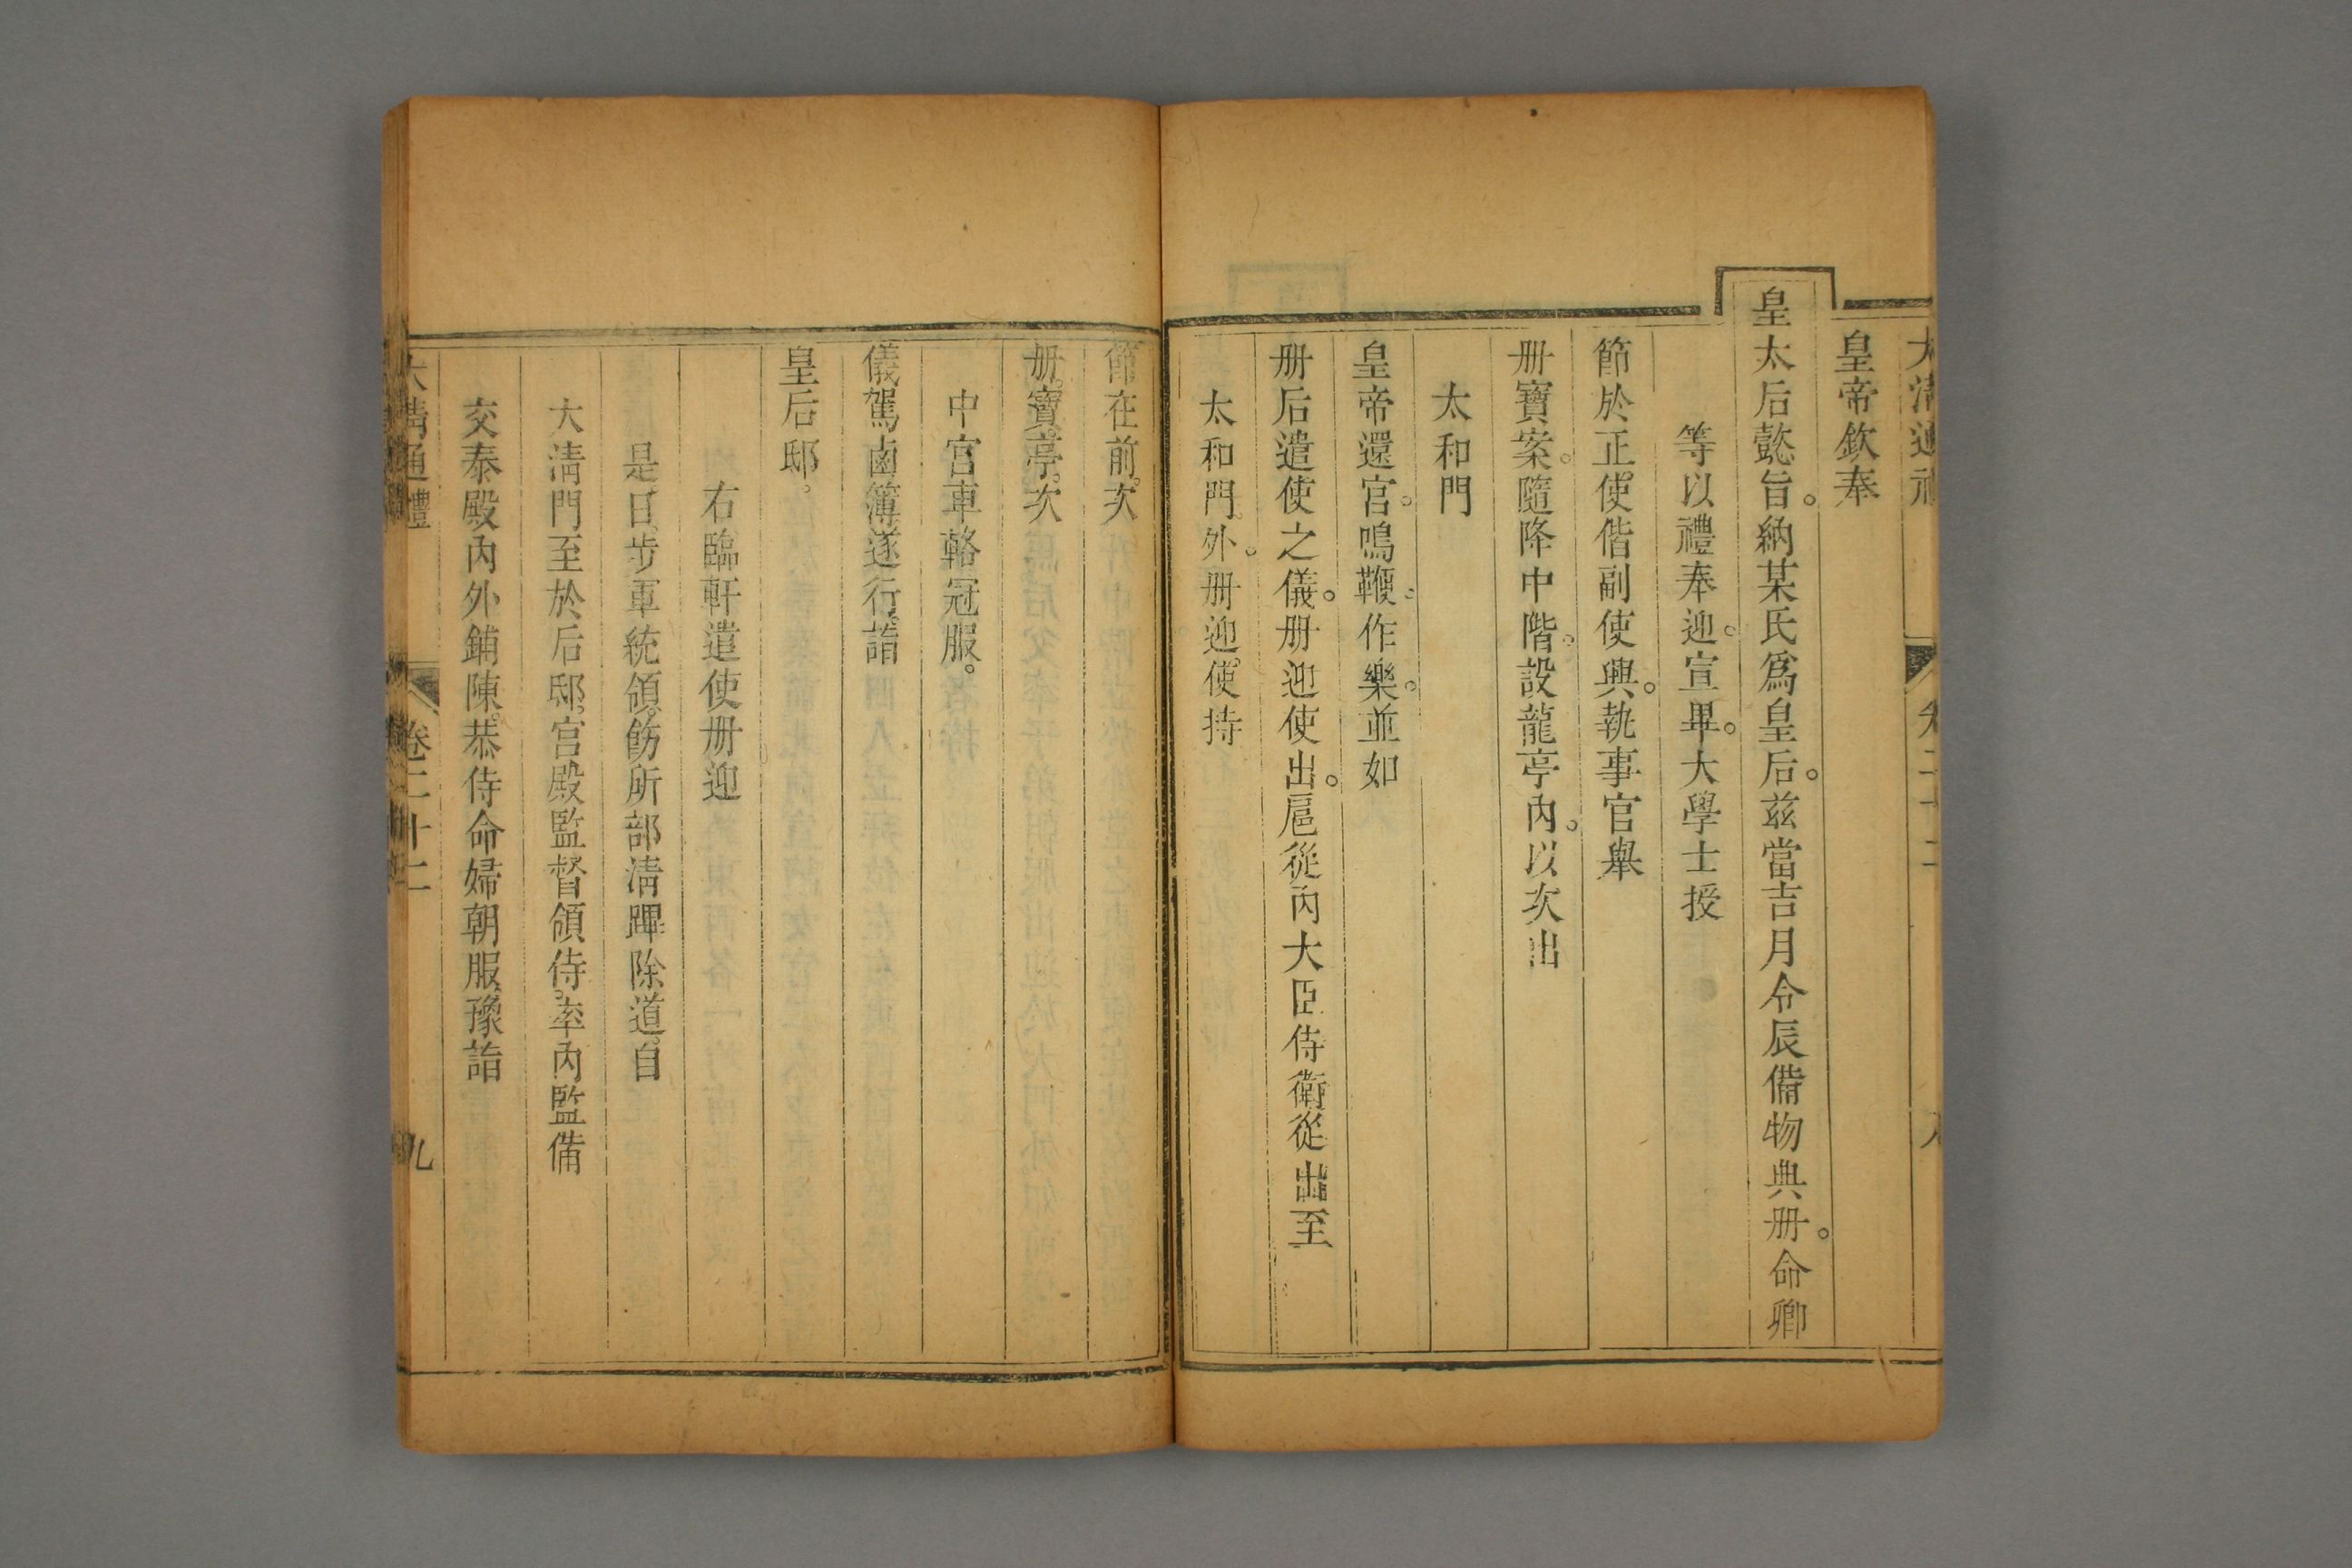 皇帝欽奉
皇太后懿旨。納某氏爲皇后。兹當吉月令辰備物典册。命卿
等以禮奉迎。宣畢。大學士授
節於正使。偕副使興。執事官舉
册寶案。隨降中階。設龍亭內。以次出
太和門
皇帝還宮。鳴鞭。作樂。並如
册后遣使之儀。册迎使出。扈從內大臣侍衛從出至
太和門外。册迎使持
節在前。次
册寶亭。次
中宮車輅冠服。
儀駕鹵簿遂行。詣
皇后邸。
右臨軒遣使册迎
是日。步軍統領。飭所部淸蹕除道。自
大淸門至於后邸。宮殿監督領侍。率內監備
交泰殿內外鋪陳。恭侍命婦朝服。豫詣
大淸通禮
卷二十二
九